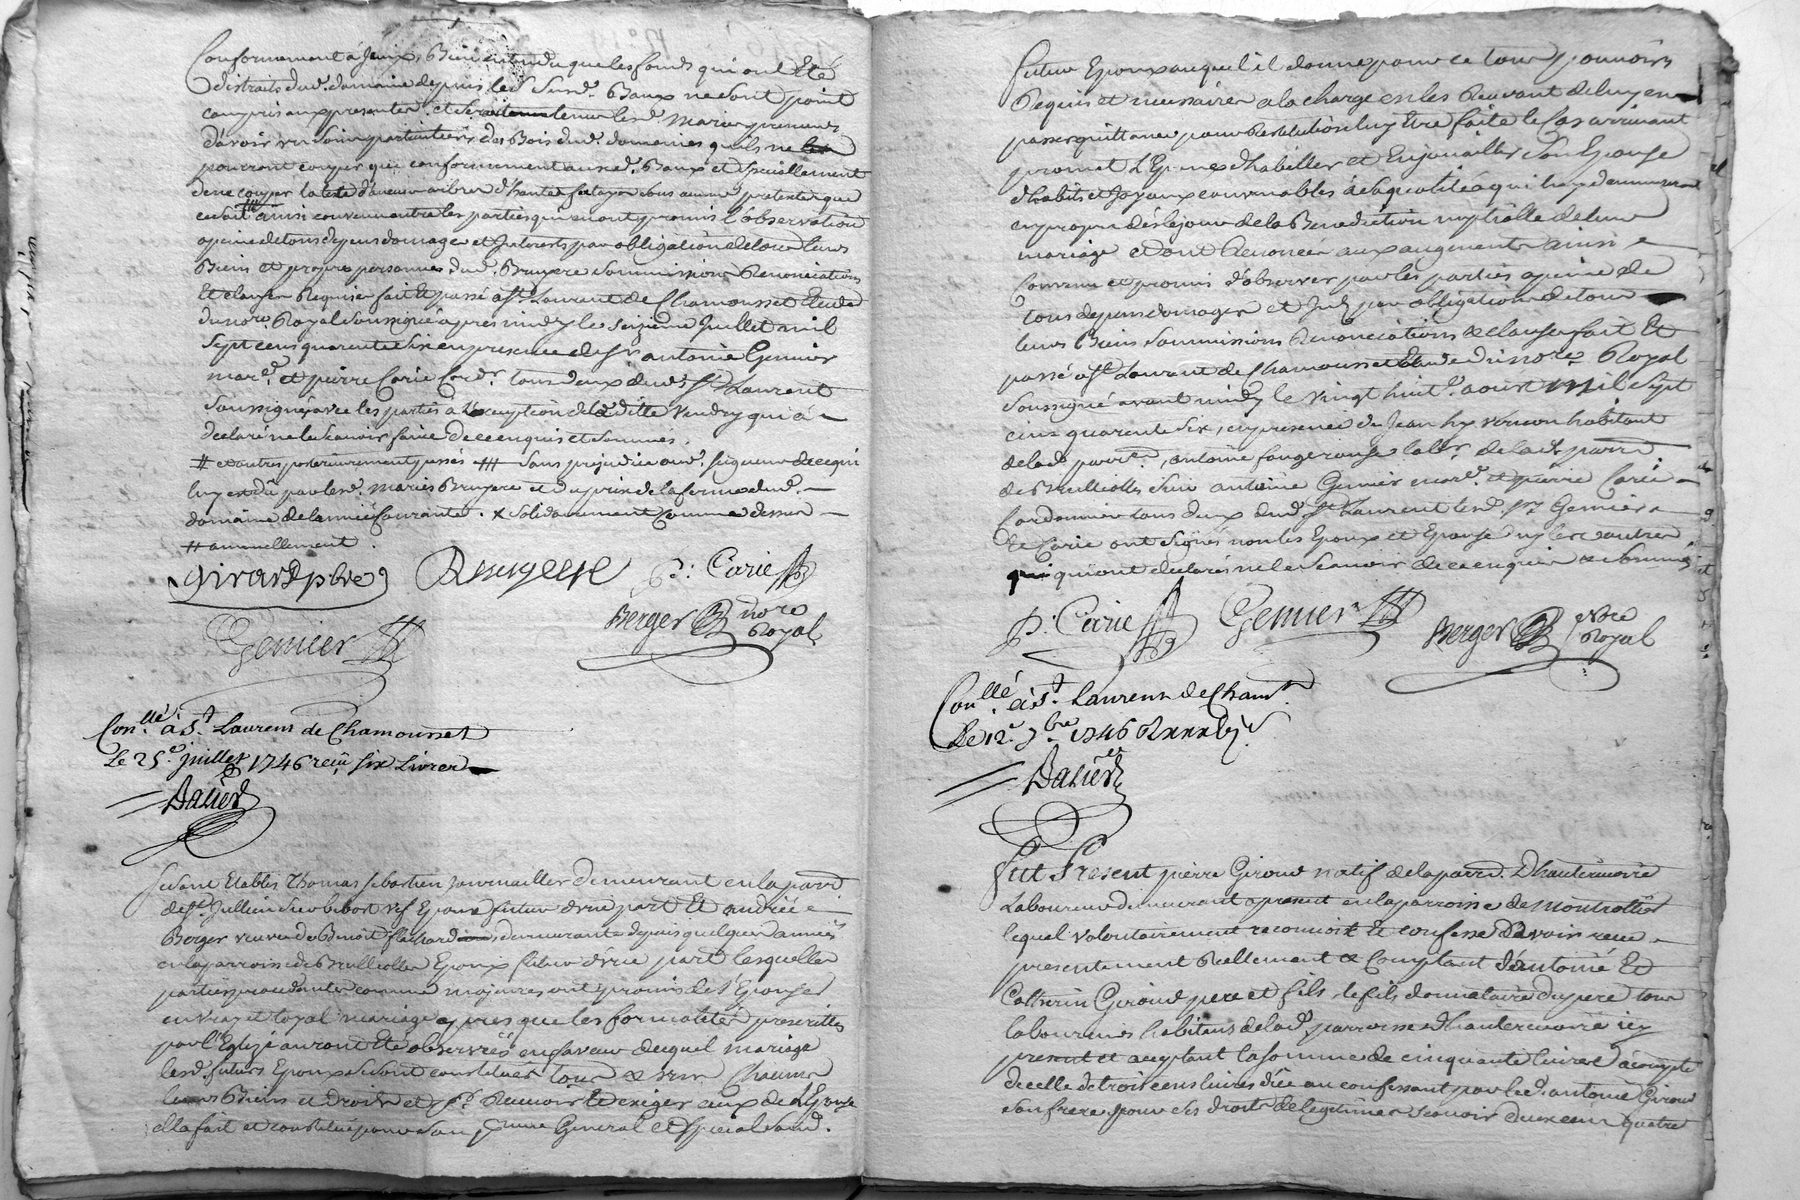 Conformement à Jceux, Bien entendu que les fonds qui ont Eté
distraits dud. domaine depuis les susd. Baux ne sont point
compris aux presentes, et seront tenus lesd. Mariés preneurs
d'avoir un soin particulier des Bois dud. domaine quils ne
pourront couper que conformement auxd. Baux et specialement
de ne couper la teste d'aucun arbre d'haute futaye sous aucun pretexte que
ce soit ainsi convenu entre les parties qui en ont promis l'observation
apeine de tous depens domages et Jnterests par obligation de tous leurs
Biens et propre personne dud. Bruyere soumissions Renonciations
Et clauses Requises fait Et passé à St. Laurent de Chamousset Etude
du nore. Royal soussigné apres midy le seizieme Juillet mil
sept cens quarente six en presence de srs antoine Genier
mard. et pierre Carie Cordr. tous deux dud. St. Laurent
soussignés avec les parties à l'exception de la ditte Vendry qui a
declaré ne le scavoir faire de ce enquis et sommés.
# et autres posterieurement passés ## sans prejudice aud. seigneur de ce qui
luy est dû par lesd. Mariés Bruyere et du prix de la ferme dud.
domaine de l'année Courante. x solidairement comme dessus
## annuellement.
Girard pbre Bruyere P: Carie
Genier Berger nore Royal
Con.llé à St. Laurens de Chamousset
Le 25e juillet 1746 reçu six Livres
Dalier
Se sont Etablis Thomas sebastien Journailler demeurant en la parr.
de St. Jullien sur bibost vef Epoux futur d'une part Et andrée
Berger veuve de Benoit flachard demeurante depuis quelques années
en la parroisse de Brulliolles Epouse future d'une part lesquelles
parties procedantes comme majeures ont promis de s'Epouser
en vray et loyal mariage apres que les formalités prescrittes
par l'Eglize auront Eté observées en faveur duquel mariage
lesd. futurs Epoux se sont constitués tous et un Chacun
leurs Biens et droits et pr. Recevoir Et exiger ceux de l'Epouse
ella fait et constitué pour son preur General et special sond.
futur Epoux auquel il donne pour ce tous pouvoirs
Requis et necessaires a la charge en les Recevant de luy en
passer quittance pour Restitution luy Etre faite le Cas arrivant
promet l'Epoux d'habiller et Enjouailler son Epouse
d'habits et Joyaux convenables à sa qualité a qui luy demeureront
en propre dès le jour de la Benediction nuptialle de leur
mariage et ont Renoncé aux augments ainsi
Convenu et promis d'observer par les parties apeine de
tous depens domages et Jnts par obligation de tous
leurs Biens soumissions Renonciations & clauses fait Et
passé à St. Laurent de Chamousset Etude du nore. Royal
soussigné avant midy le vingt huite. aoust mil sept
cens quarente six, en presence de Jean
de lad. parr., antoine fougerouse labr. de lad. parr.
de Brulliolles sieur antoine Genier mard. et pierre Carie
Cordonnier tous deux dud. St. Laurent lesd. srs Genier
Et Carie ont signés non les Epoux et Epouse ny les autres
qui ont declarés ne le scavoir de ce enquis & sommés
P: Carie Genier Berger nore Royal
Con.llé à St. Laurens de Chamt.
Le 12e 7bre 1746
Dalier
Fut Present pierre Giroud natif de la parr. D'hauterivoire
Laboureur demeurant apresent en la parroisse de Montrottier
lequel volontairement reconnoit Et confesse D'avoir receu
presentement Reellement & Comptant d'antoine Et
Catherin Giroud pere et fils, le fils donnataire du pere tous
laboureurs habitans de lad. parroisse d'hauterivoire icy
present et acceptant la somme de cinquante livres à compte
de celle de trois cens livres düe au confessant par led. antoine Giroud
son frere pour ses droits de legitimes scavoir deux cens quatre